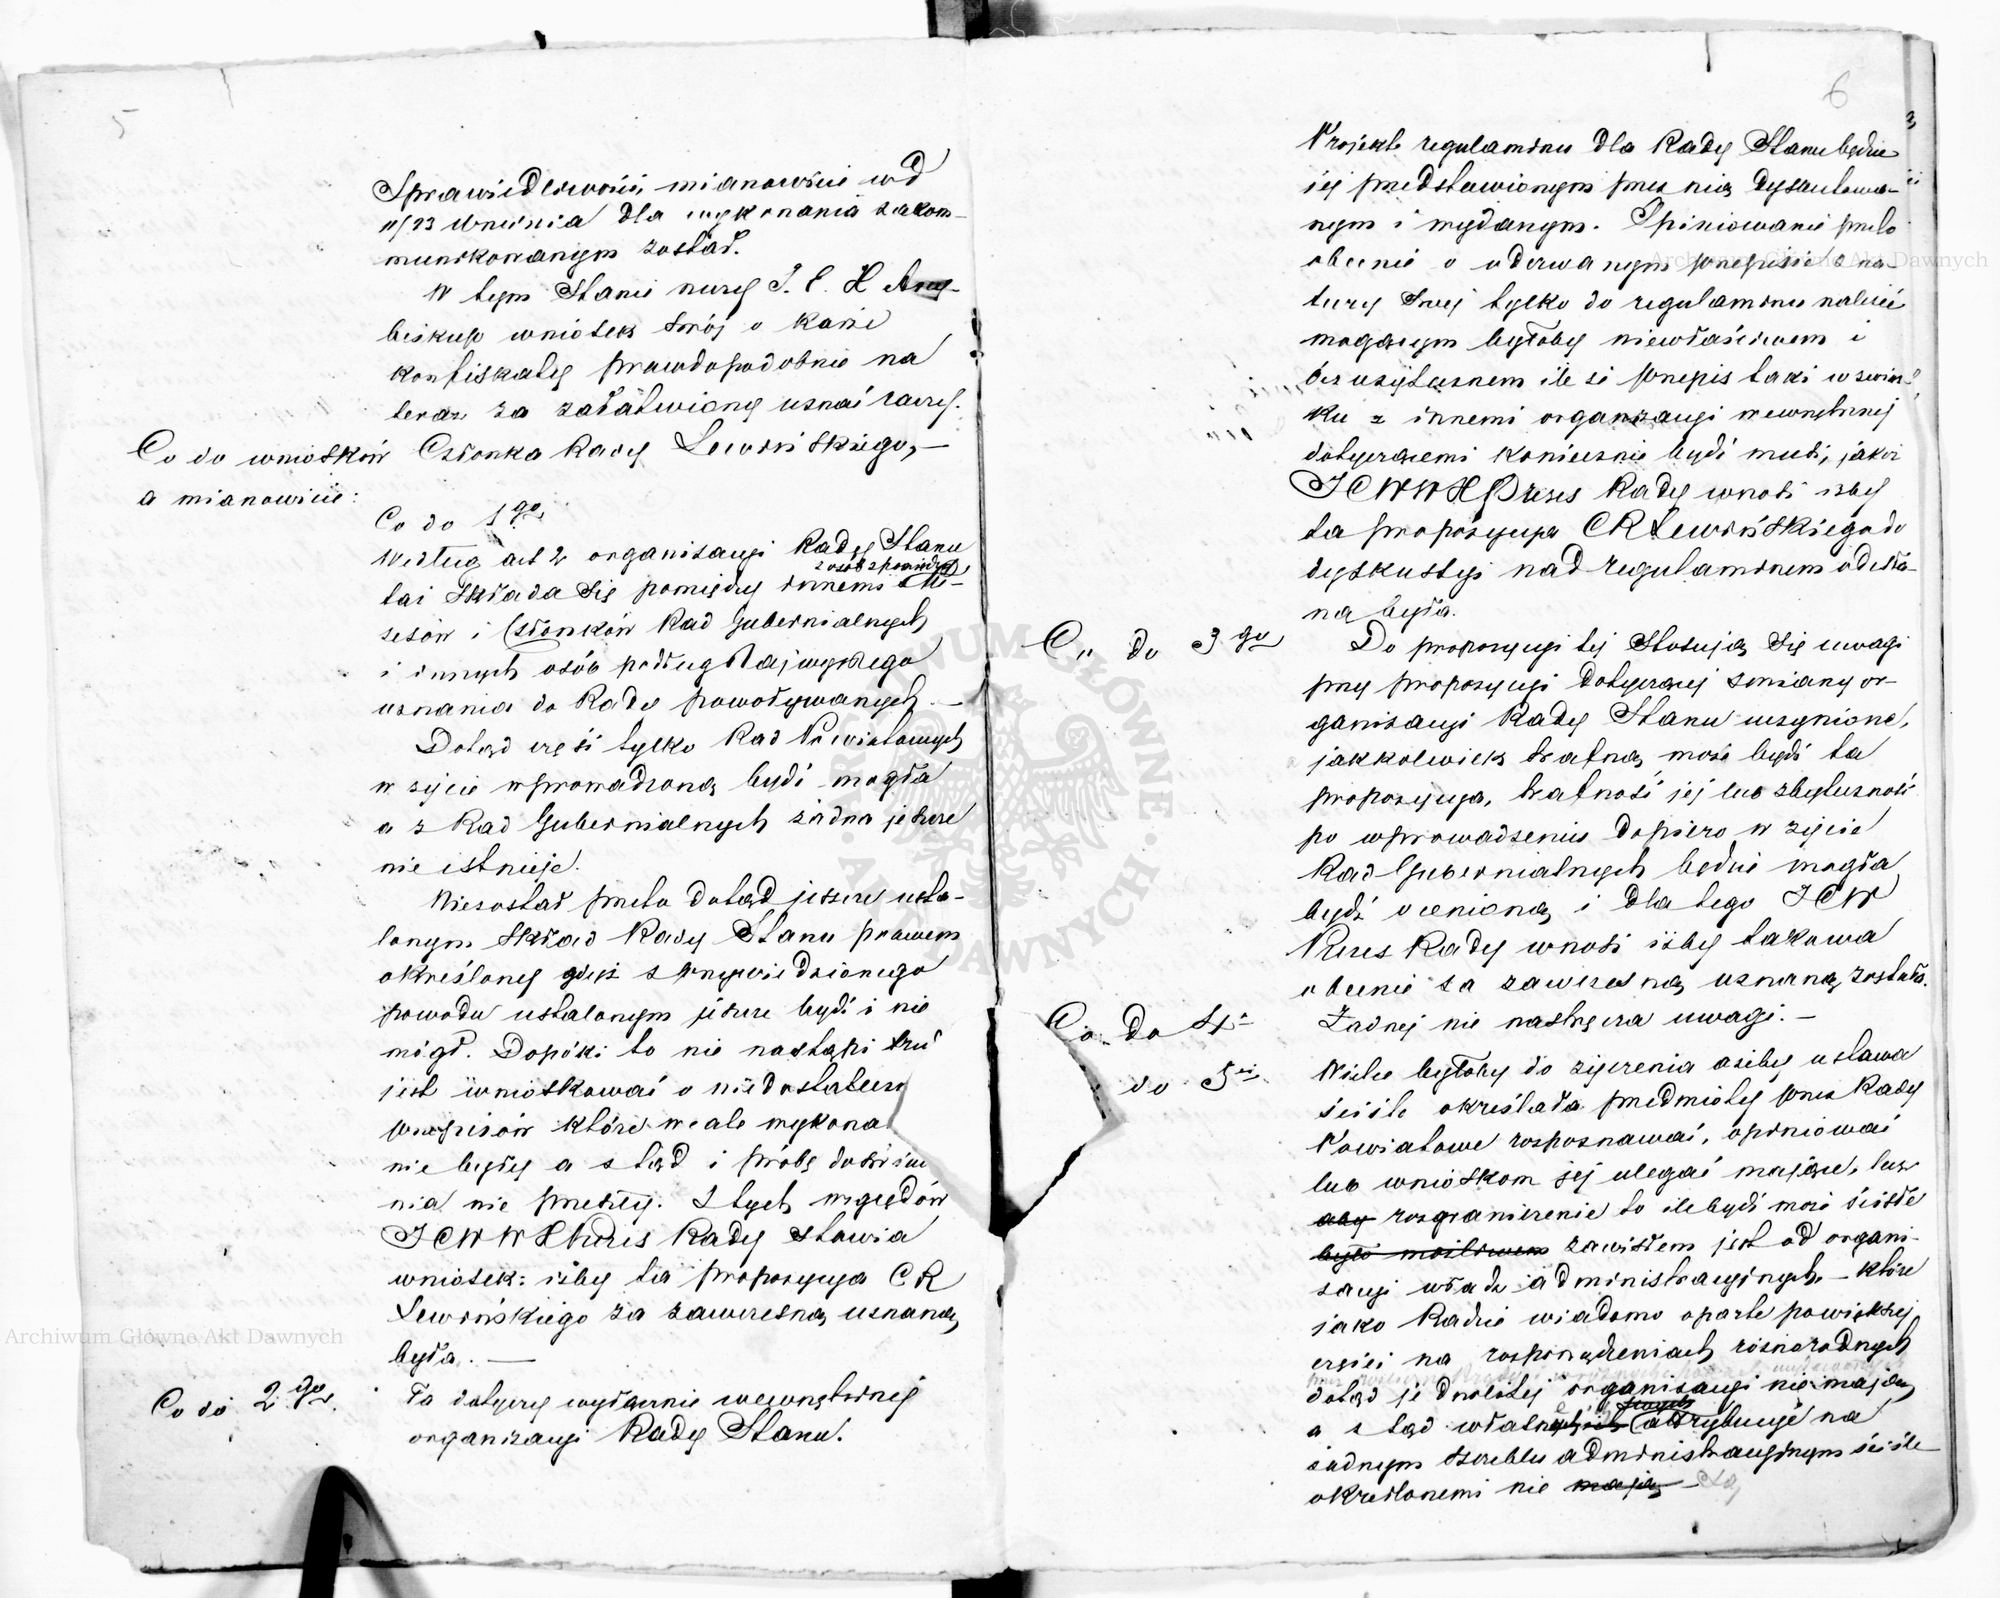 5
Sprawiedliwości mianowicie w d
11/23 Września dla wykonania zakom-
munikowanym został.
W tym Stanie rzeczy J. E. X Arcy-
biskup wniosek swój o karze
konfiskaty prawdopodobnie na
teraz za załatwiony uznać raczy.
Co do wniosków Członka Rady Lewińskiego,—
a mianowicie:
Co do 1go
Według art 2 organizacyi Rady Stanu
z osób z pomiędzy
taż składa się pomiędzy innemi Pre-
zesów i Członków Rad Gubernialnych
i innych osób podług Najwyższego
uznania do Rady powoływanych.—
Dotąd część tylko Rad Powiatowych
w życie wprowadzoną bydź mogła
a z Rad Gubernialnych żadna jeszcze
nie istnieje.
Niezostał przeto dotąd jeszcze usta-
lonym skład Rady Stanu prawem
określony gdyż z przywiedzionego
powodu ustalonym jeszcze bydź i nie
mógł. Dopóki to nie nastąpi
jest wnioskować o niedostatecz
przepisów które wcale wykona
nie były a ztąd i próby doświadcz
nia nie przeszły. Z tych względów
JCWW X Prezes Rady stawia
wniosek: iżby ta propozycya C R
Lewińskiego za zawczesną uznaną
była.—
Co do 2go. Ta dotyczy wyłącznie wewnętrznej
organizacyi Rady Stanu.
6
3
Projekt regulaminu dla Rady Stanu będzie
jej przedstawionym przez nią dyskutowa-
nym i wydanym. Opiniowanie przeto
obecnie o oderwanym przepisie z na-
tury swej tylko do regulaminu należeć
mogącym byłoby niewłaściwem i
bezużytecznem ile że przepis taki w związ-
ku z innemi organizacyi wewnętrznej
dotyczącemi koniecznie bydź musi, jakoż
JCWW X Prezes Rady wnosi iżby
ta propozycya CR Lewińskiego do
dyskussyi nad regulaminem odesła-
na była.
Co do 3go Do propozycyi tej stosują się uwagi
przy propozycyi dotyczącej zmiany or-
ganizacyi Rady Stanu uczynione,
jakkolwiek trafną może bydź ta
propozycya, trafność jej lub zbyteczność
po wprowadzeniu dopiero w życie
Rad Gubernialnych będzie mogła
bydź ocenioną i dla tego JCW
Prezes Rady wnosi iżby takowa
obecnie za zawczesną uznaną została.
Co do 4o Żadnej nie nastręcza uwagi.—
do 5o Wiele byłoby do życzenia ażeby ustawa
ściśle określała przedmioty przez Rady
Powiatowe rozpoznawać, opiniować
lub wnioskom jej ulegać mające, lecz
aby rozgraniczenie to ile bydź może ściśle
było możliwem zawisłem jest od organi-
zacyi władz administracyjnych—które
jako Radzie wiadomo oparte powiększej
części na rozporządzeniach różnorodnych
dotąd jednolitej organizacyi nie mają
swych
a ztąd attrybucye na
żadnym szczeblu administracyjnym ściśle
określonemi nie mają— są